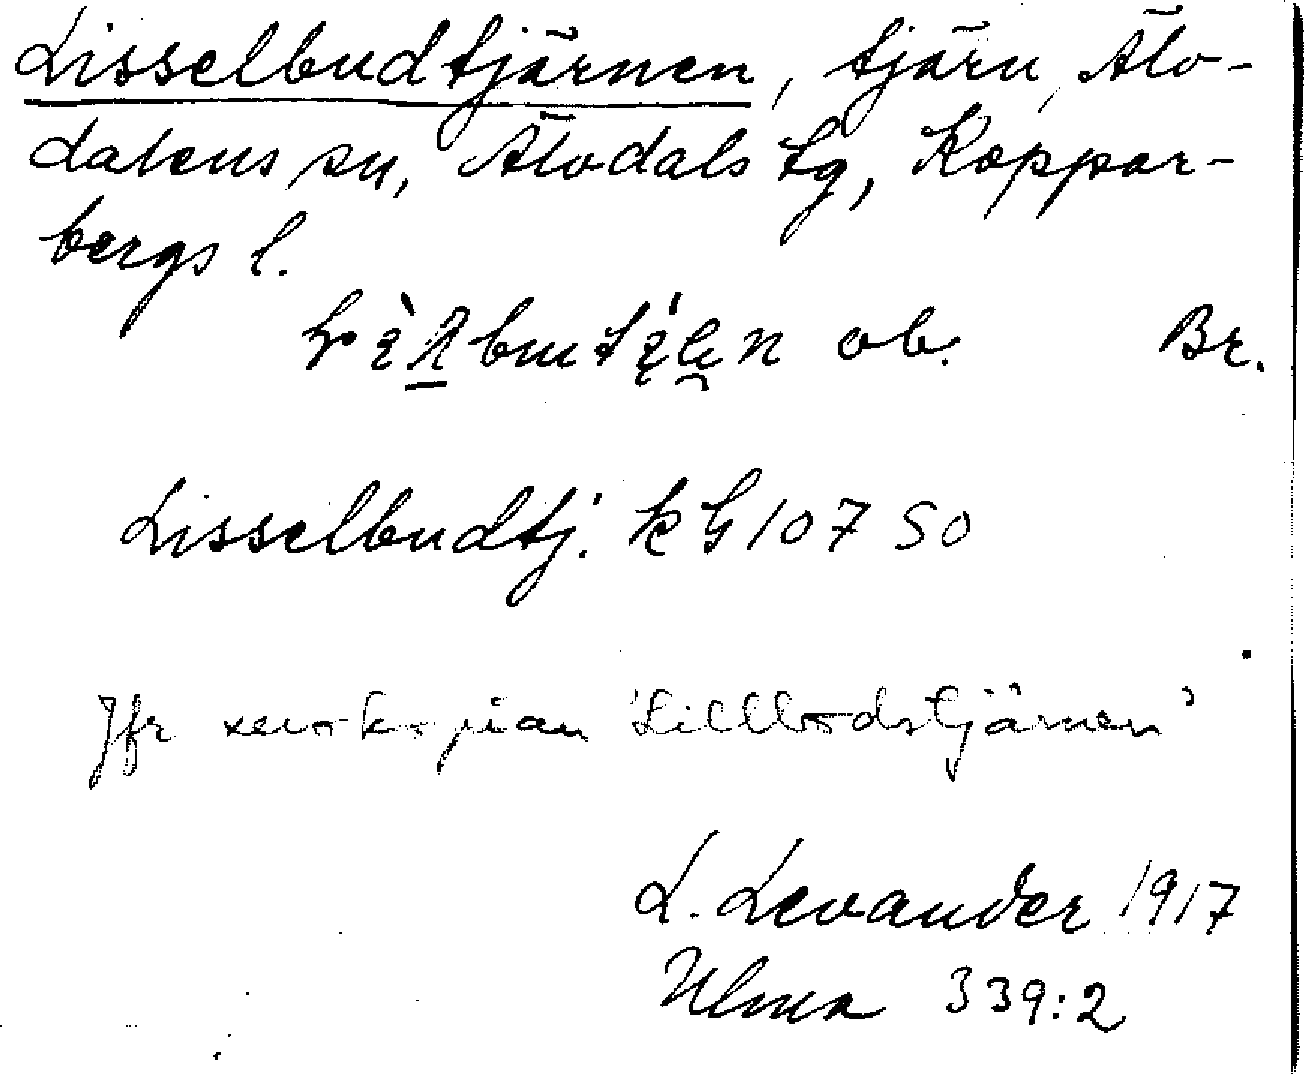 Lisselbudtjärnen, tjärn, Älv-
dalens sn, Älvdals tg, Koppar-
bergs l.
ob. Br.
Lisselbudtj. kG 10750
Jfr xerokopian 'Lillbodstjärnen'
L. Levander 1917
Ulma 339:2